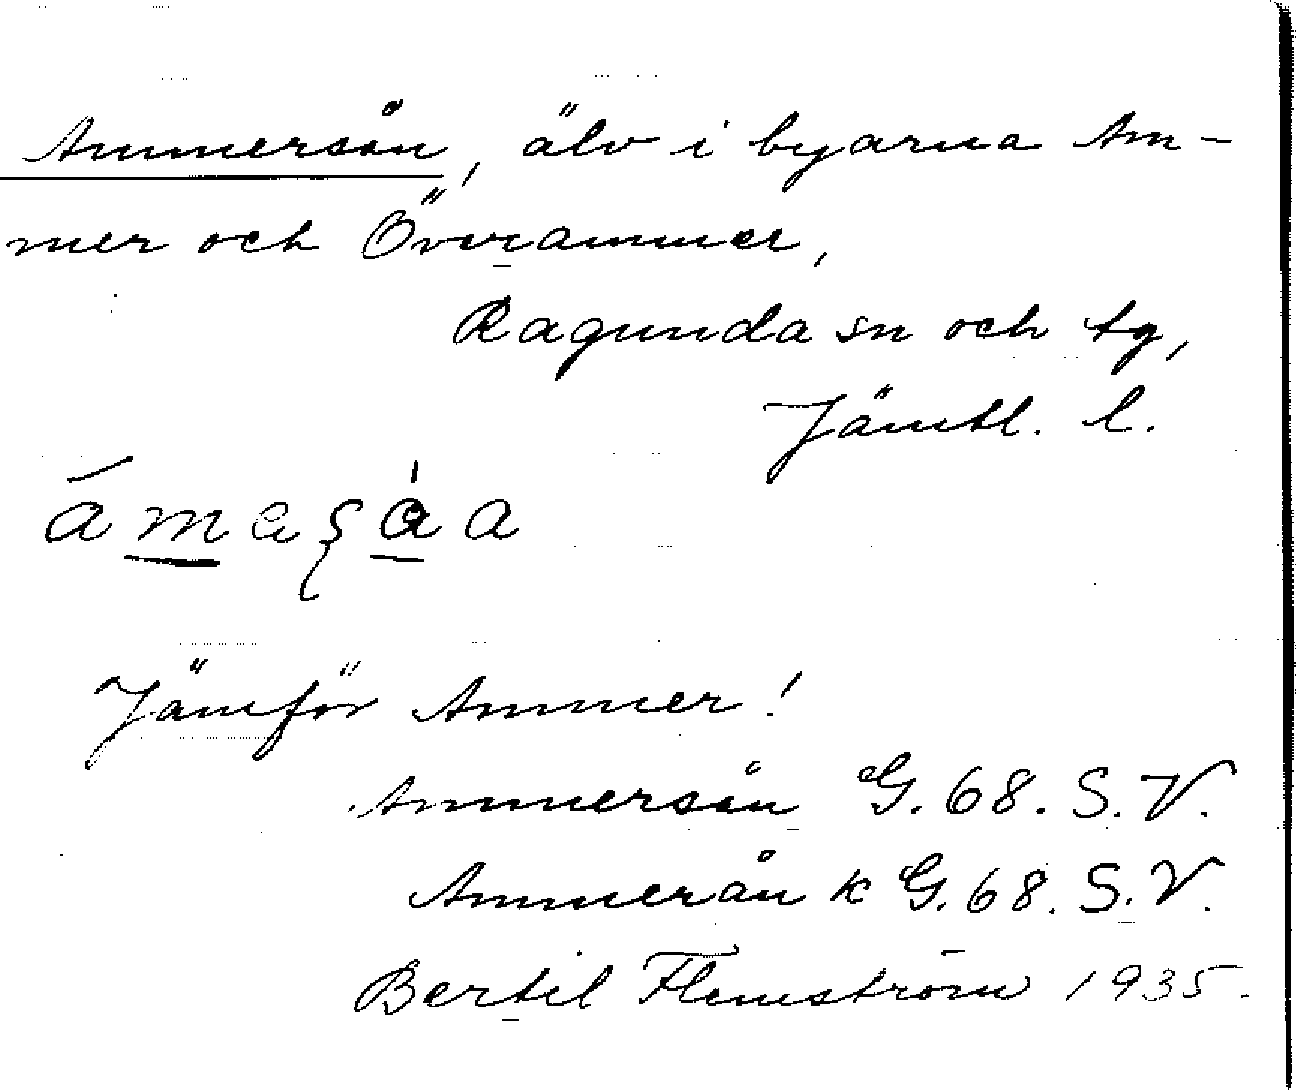 Ammersån, älv i byarna Am-
mer och Överammer,
Ragunda sn och tg,
Jämtl. l.
Jämför Ammer!
Ammersån G. 68. S.V.
Ammerån k G. 68. S.V.
Bertil Flemström 1935.